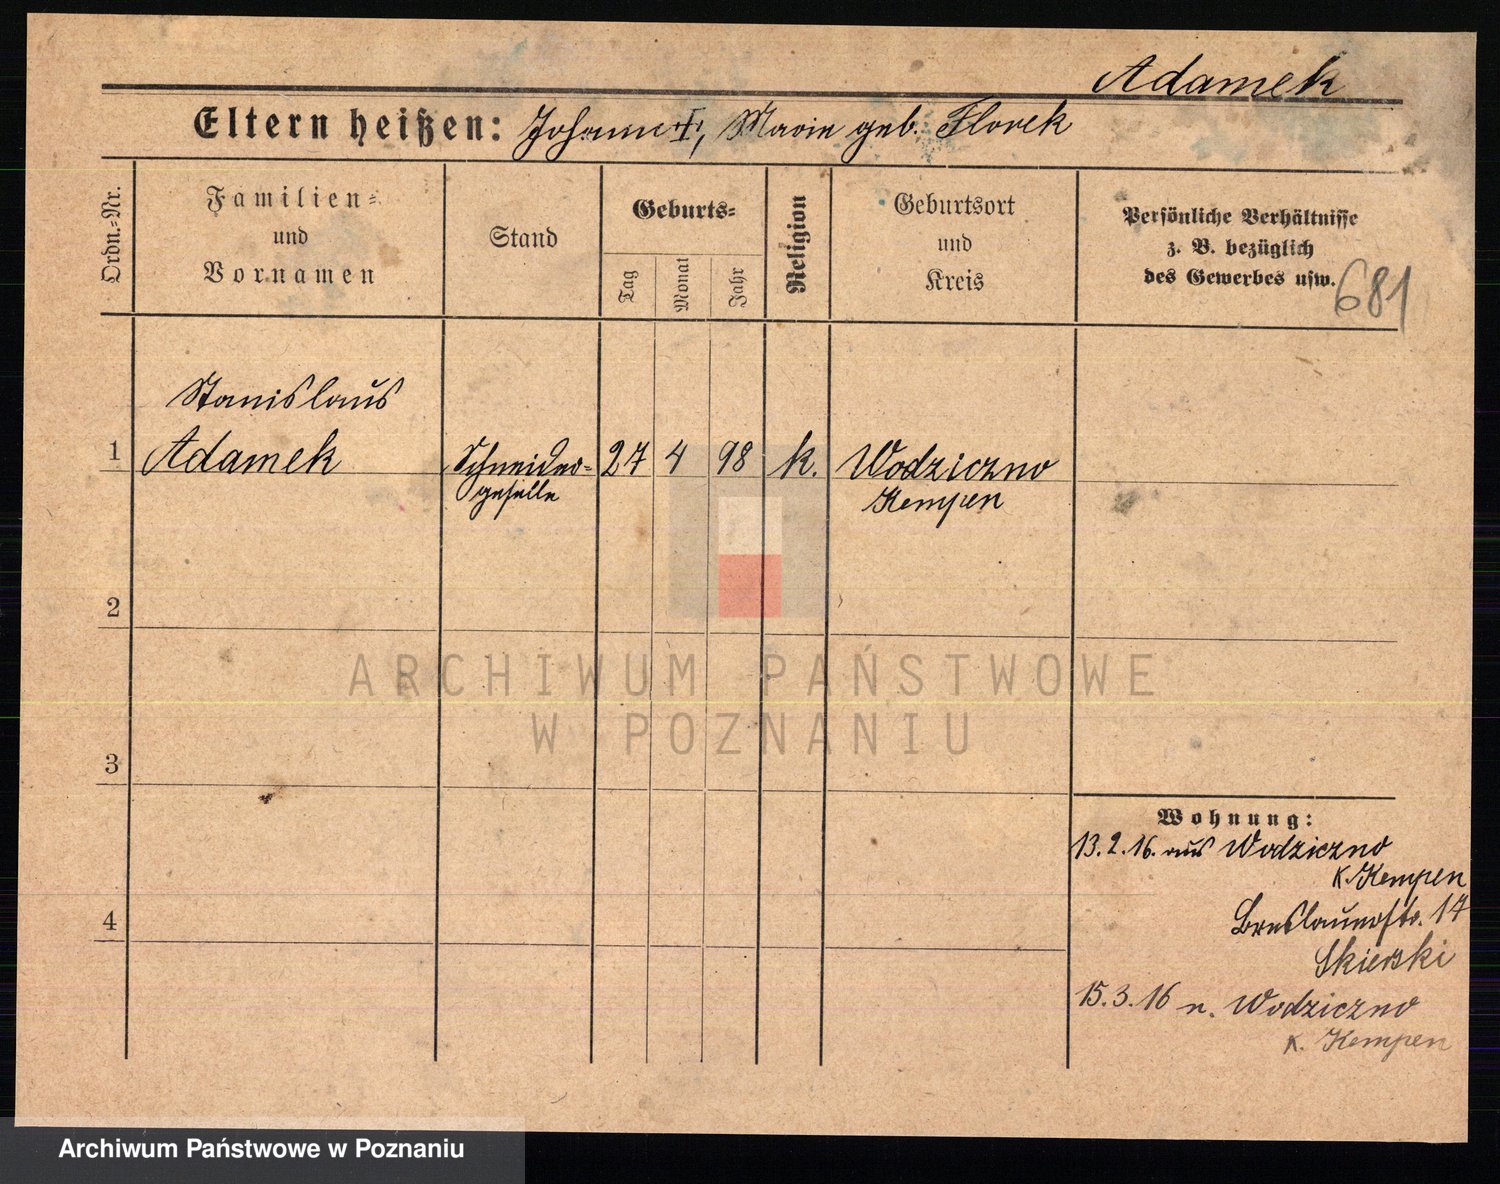 Adamek
Eltern heißen: Johann †, Marie geb. Florek
Ordn.=Nr.
Familien=
und
Vornamen
Stand
Geburts=
Tag
Monat
Jahr
Religion
Geburtsort
und
Kreis
Persönliche Verhältnisse
z. B. bezüglich
des Gewerbes usw.
681
Stanislaus
1 Adamek Schneider= 27 4 98 k. Wodziczno
geselle Kempen
2
3
4
Wohnung:
13.2.16. aus Wodziczno
K. Kempen
Breslauerstr. 17
Skierski
15.3.16 n. Wodziczno
K. Kempen
ARCHIWUM PAŃSTWOWE
W POZNANIU
Archiwum Państwowe w Poznaniu